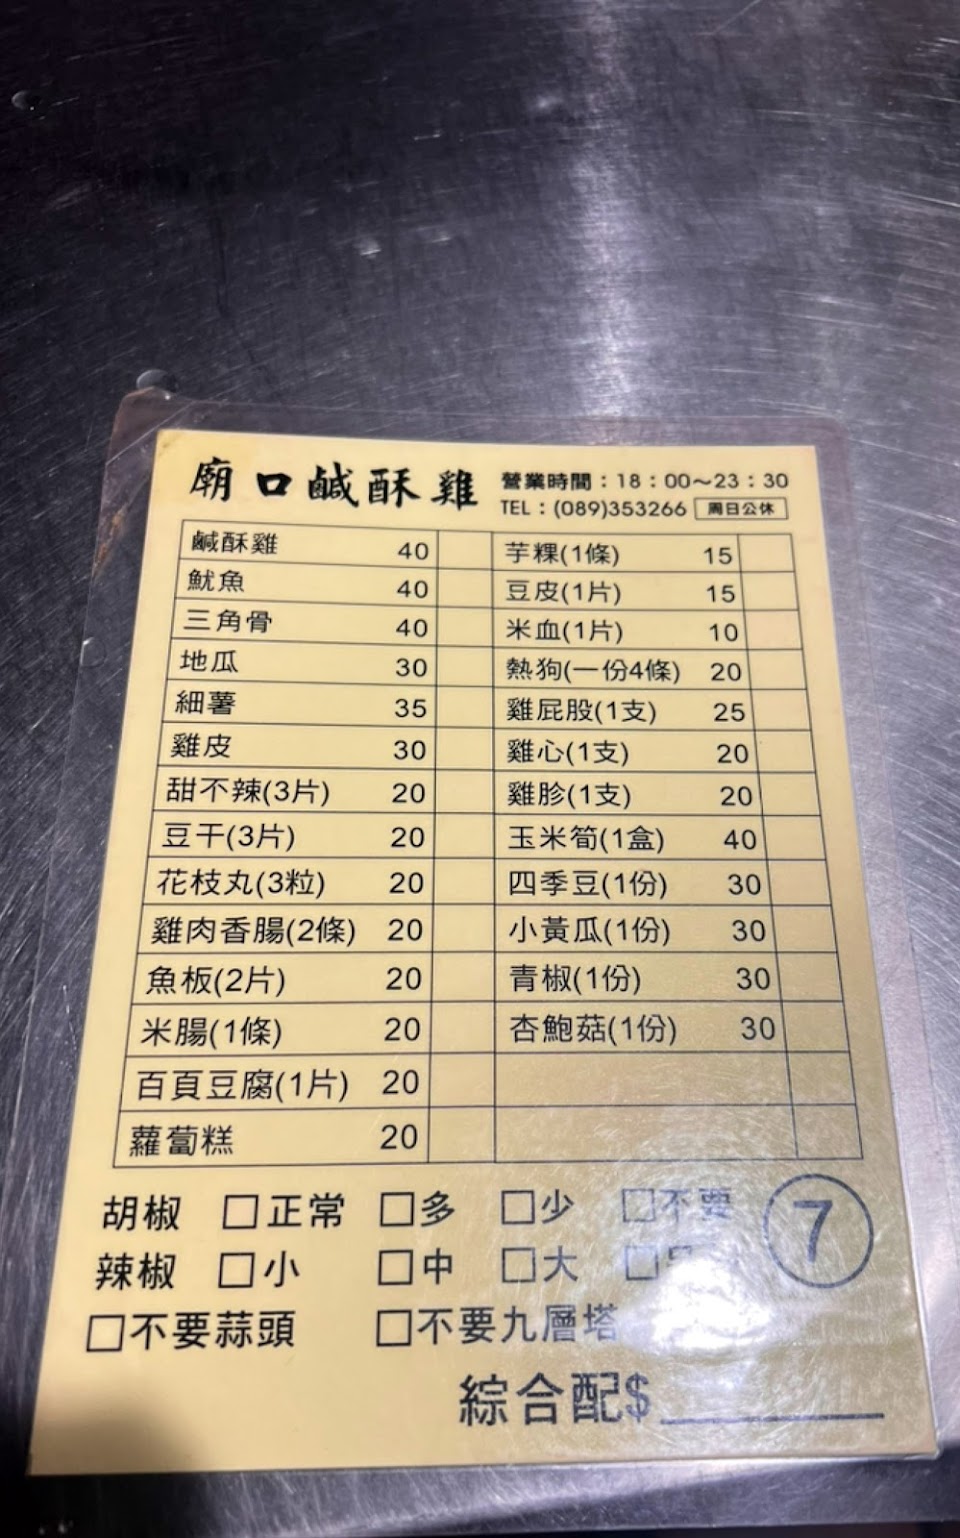 廟口鹹酥雞
營業時間：18：00～23：30
TEL：(089)353266 周日公休
鹹酥雞 40 芋粿(1條) 15
魷魚 40 豆皮(1片) 15
三角骨 40 米血(1片) 10
地瓜 30 熱狗(一份4條) 20
細薯 35 雞屁股(1支) 25
雞皮 30 雞心(1支) 20
甜不辣(3片) 20 雞胗(1支) 20
豆干(3片) 20 玉米筍(1盒) 40
花枝丸(3粒) 20 四季豆(1份) 30
雞肉香腸(2條) 20 小黃瓜(1份) 30
魚板(2片) 20 青椒(1份) 30
米腸(1條) 20 杏鮑菇(1份) 30
百頁豆腐(1片) 20
蘿蔔糕 20
胡椒 □正常 □多 □少 □不要 ⑦
辣椒 □小 □中 □大 □
□不要蒜頭 □不要九層塔
綜合配$